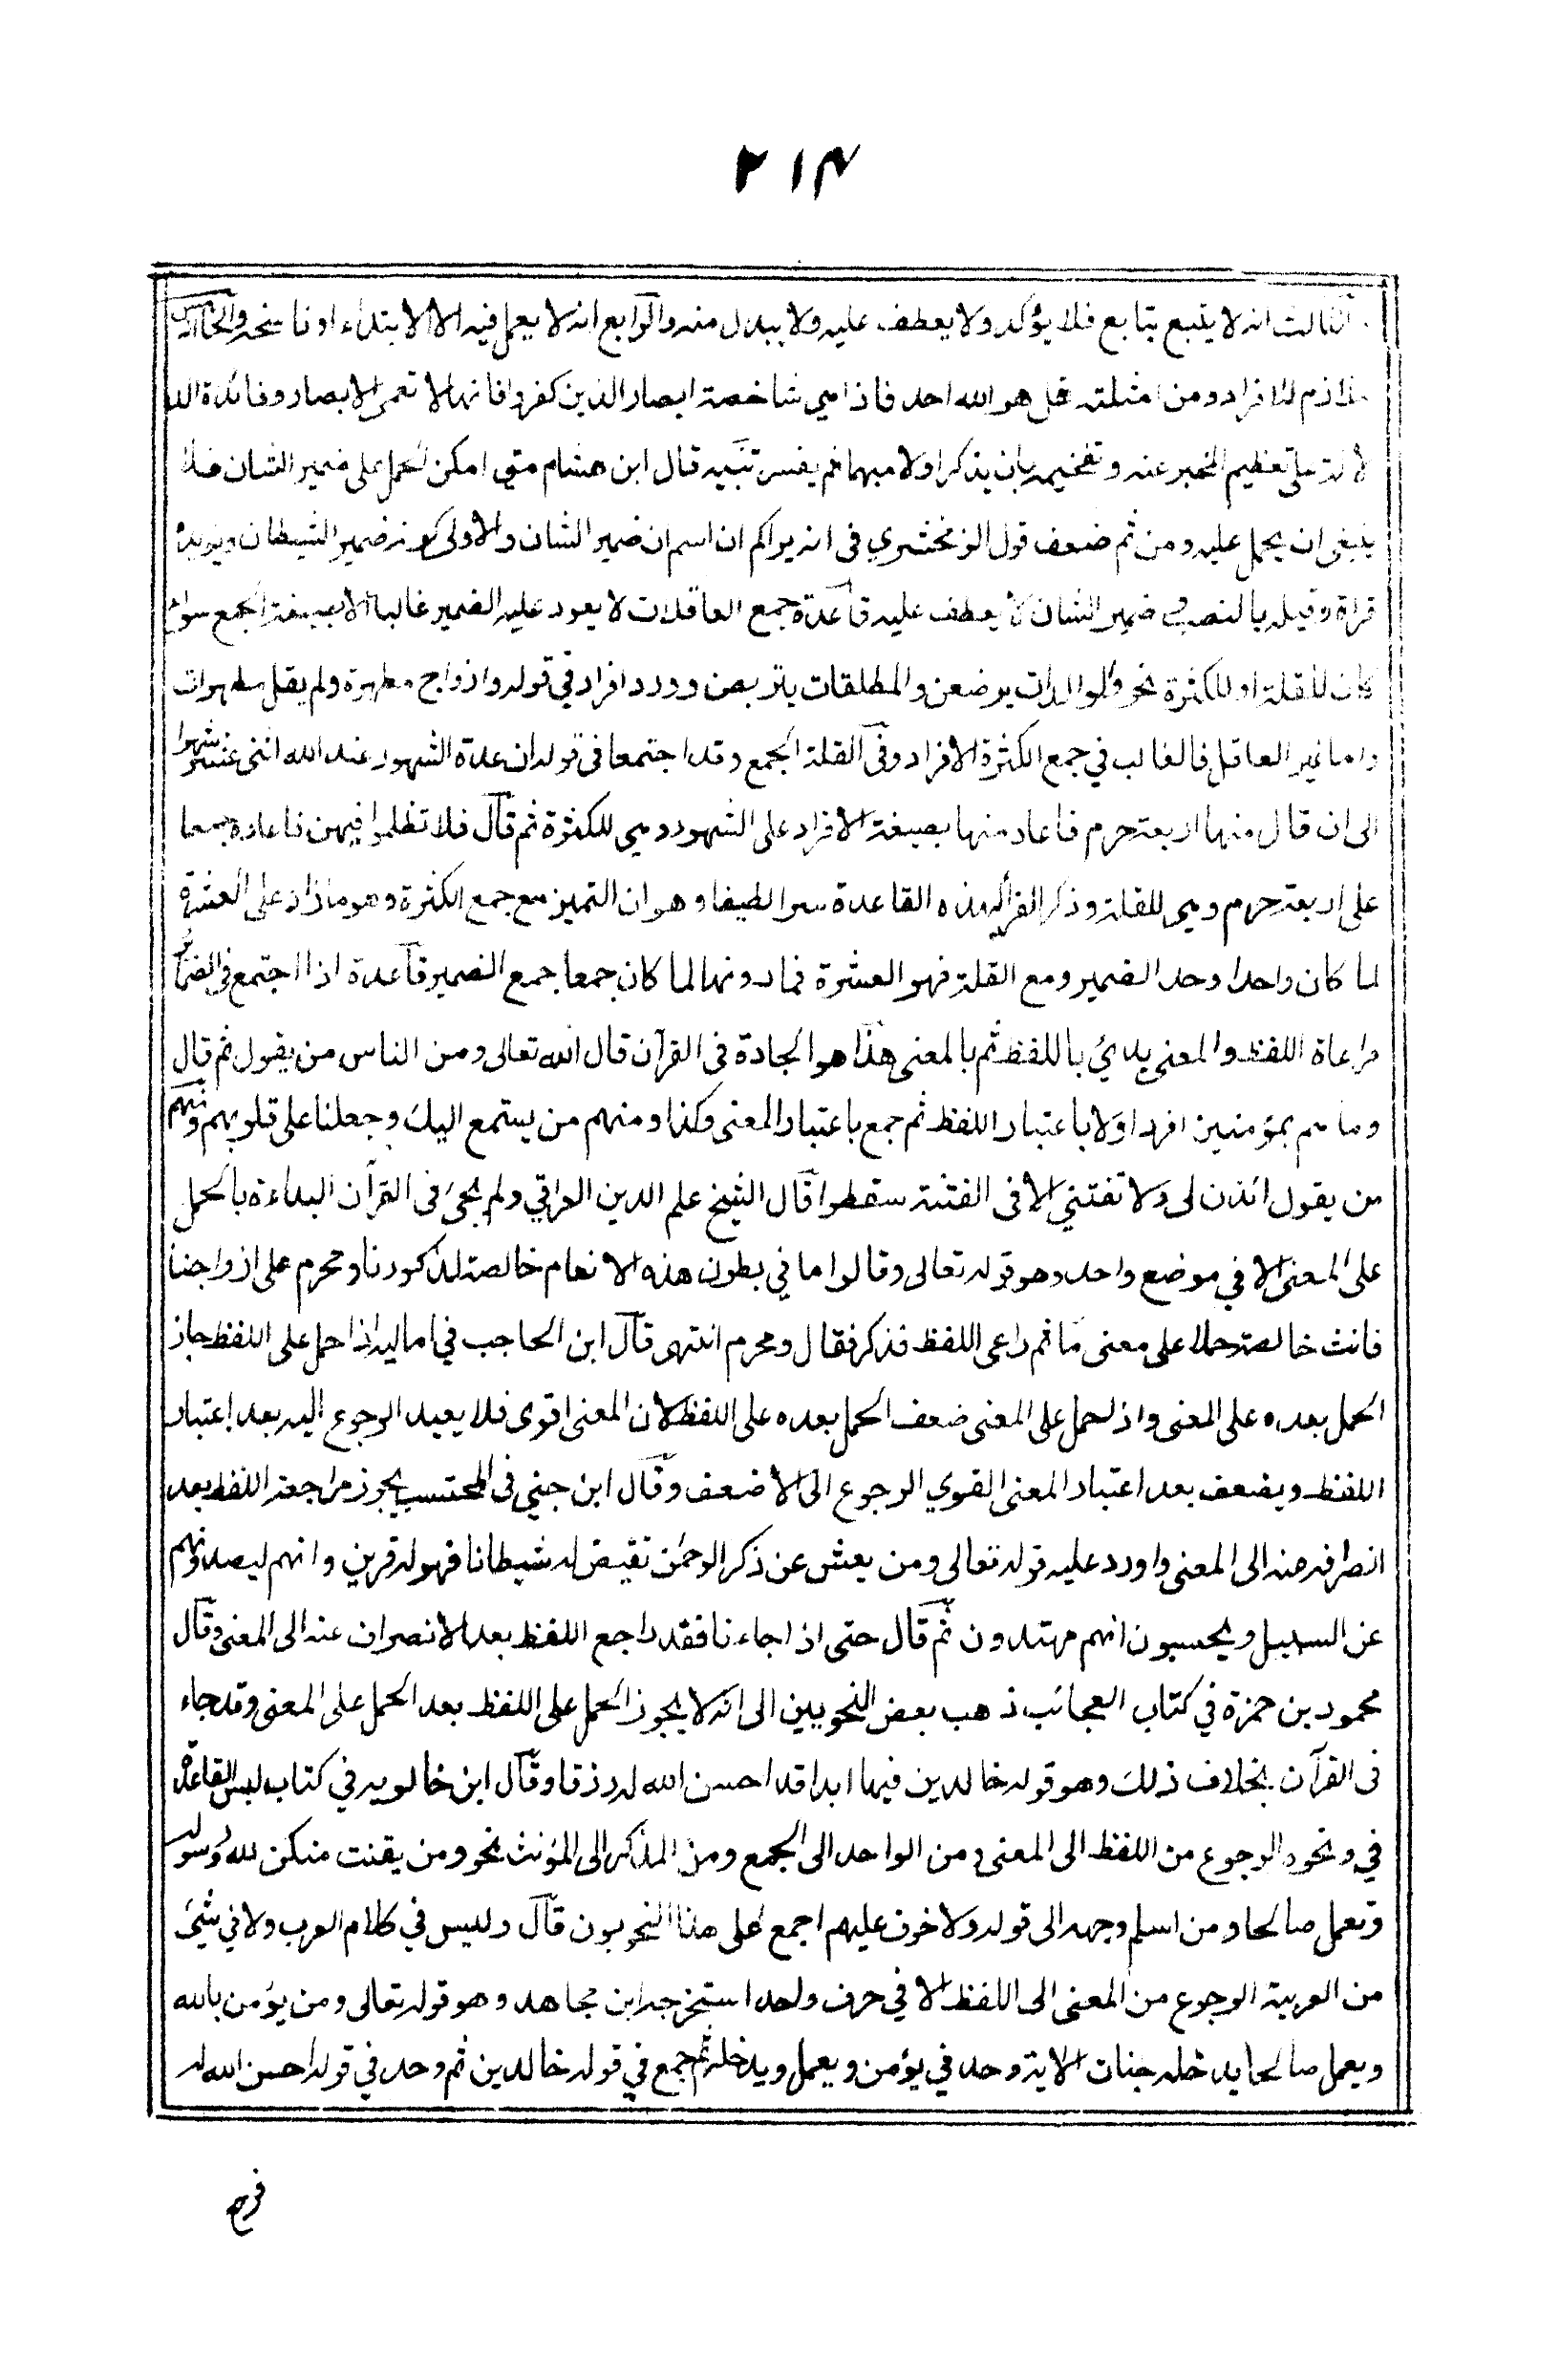 ٢١٤
الثالث انه لا يتبع بتابع فلا يؤكد ولا يعطف عليه ولا يبدل منه والرابع انه لا يعمل فيه الا الابتداء او ناسخه والخامس انه
ملازم للافراد ومن امثلته قل هو الله احد فاذا هي شاخصة ابصار الذين كفروا فانها لا تعمى الابصار وفائدة الد
لالة على تعظيم المخبر عنه وتفخيمه بان يذكر اولا مبهما ثم يفسر تنبيه قال ابن هشام متى امكن الحمل على ضمير الشان فلا
ينبغي ان يحمل عليه ومن ثم ضعف قول الزمخشري في انه يراكم ان اسم ان ضمير الشان والاولى كونه ضمير الشيطان ويؤيده
قراة وقبيله بالنصب و ضمير الشان لا يعطف عليه قاعدة جمع العاقلات لا يعود عليه الضمير غالبا الا بصيغة الجمع سواء
كان للقلة او للكثرة نحو والوالدات يرضعن والمطلقات يتربصن وورد افراد في قوله وازواج مطهرة ولم يقل مطهرات
واما غير العاقل فالغالب في جمع الكثرة الافراد وفي القلة الجمع وقد اجتمعا في قوله ان عدة الشهور عند الله اثنى عشر شهرا
الى ان قال منها اربعة حرم فاعاد منها بصيغة الافراد على الشهور وهي للكثرة ثم قال فلا تظلموا فيهن فاعاده جمعا
على اربعة حرم وهي للقلة وذكر الفراء لهذه القاعدة سرا لطيفا وهو ان التميز مع جمع الكثرة وهو ما زاد على العشرة
لما كان واحدا وحد الضمير ومع القلة فهو العشرة فما دونها لما كان جمعا جمع الضمير قاعدة اذا اجتمع في الضمائر
مراعاة اللفظ والمعنى بدئ باللفظ ثم بالمعنى هذا هو الجادة في القرآن قال الله تعالى ومن الناس من يقول ثم قال
وما هم بمؤمنين افرد اولا باعتبار اللفظ ثم جمع باعتبار المعنى وكذا ومنهم من يستمع اليك وجعلنا على قلوبهم ومنهم
من يقول ائذن لى ولا تفتني الا فى الفتنة سقطوا قال الشيخ علم الدين العراقي ولم يجئ فى القرآن البداءة بالحمل
على المعنى الا في موضع واحد وهو قوله تعالى وقالوا ما في بطون هذه الانعام خالصة لذكورنا ومحرم على ازواجنا
فانث خالصة حملا على معنى ما ثم راعى اللفظ فذكر فقال ومحرم انتهى قال ابن الحاجب في اماليه اذا حمل على اللفظ جاز
الحمل بعده على المعنى واذا حمل على المعنى ضعف الحمل بعده على اللفظ لان المعنى اقوى فلا يبعد الرجوع اليه بعد اعتبار
اللفظ ويضعف بعد اعتبار المعنى القوي الرجوع الى الاضعف وقال ابن جني فى المحتسب يجوز مراجعة اللفظ بعد
انصرافه عنه الى المعنى واورد عليه قوله تعالى ومن يعش عن ذكر الرحمن نقيض له شيطانا فهو له قرين وانهم ليصدونهم
عن السبيل ويحسبون انهم مهتدون ثم قال حتى اذا جاءنا فقد راجع اللفظ بعد الانصراف عنه الى المعنى وقال
محمود بن حمزة في كتاب العجائب ذهب بعض النحويين الى انه لا يجوز الحمل على اللفظ بعد الحمل على المعنى وقد جاء
فى القرآن بخلاف ذلك وهو قوله خالدين فيها ابدا قد احسن الله له رزقا وقال ابن خالويه في كتاب ليس القاعدة
في و نحوه الرجوع من اللفظ الى المعنى ومن الواحد الى الجمع ومن المذكر الى المؤنث نحو ومن يقنت منكن لله ورسوله
وتعمل صالحا ومن اسلم وجهه الى قوله ولا خوف عليهم اجمع على هذا النحويون قال وليس في كلام العرب ولا في شئ
من العربية الرجوع من المعنى الى اللفظ الا في حرف واحد استخرجه ابن مجاهد وهو قوله تعالى ومن يؤمن بالله
ويعمل صالحا يدخله جنات الاية وحد في يؤمن ويعمل ويدخله ثم جمع في قوله خالدين ثم وحد في قوله احسن الله له